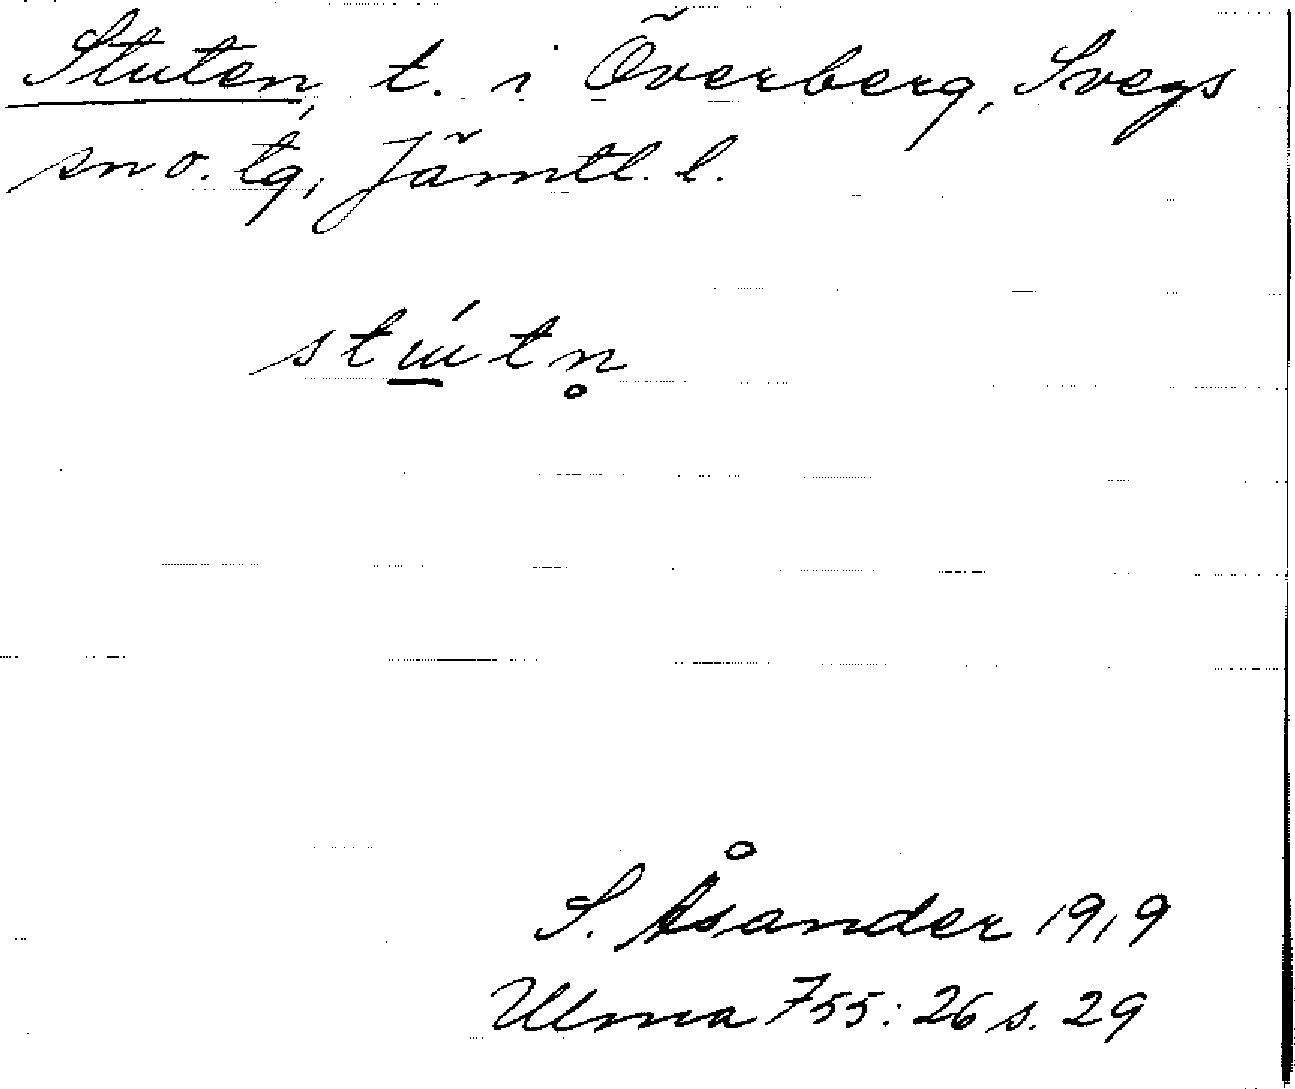 Stuten, t. i Överberg, Svegs
sn o. tg, Jämtl. l.
stú̲tn̥
S. Åsander 1919
Ulma 755:26 s. 29